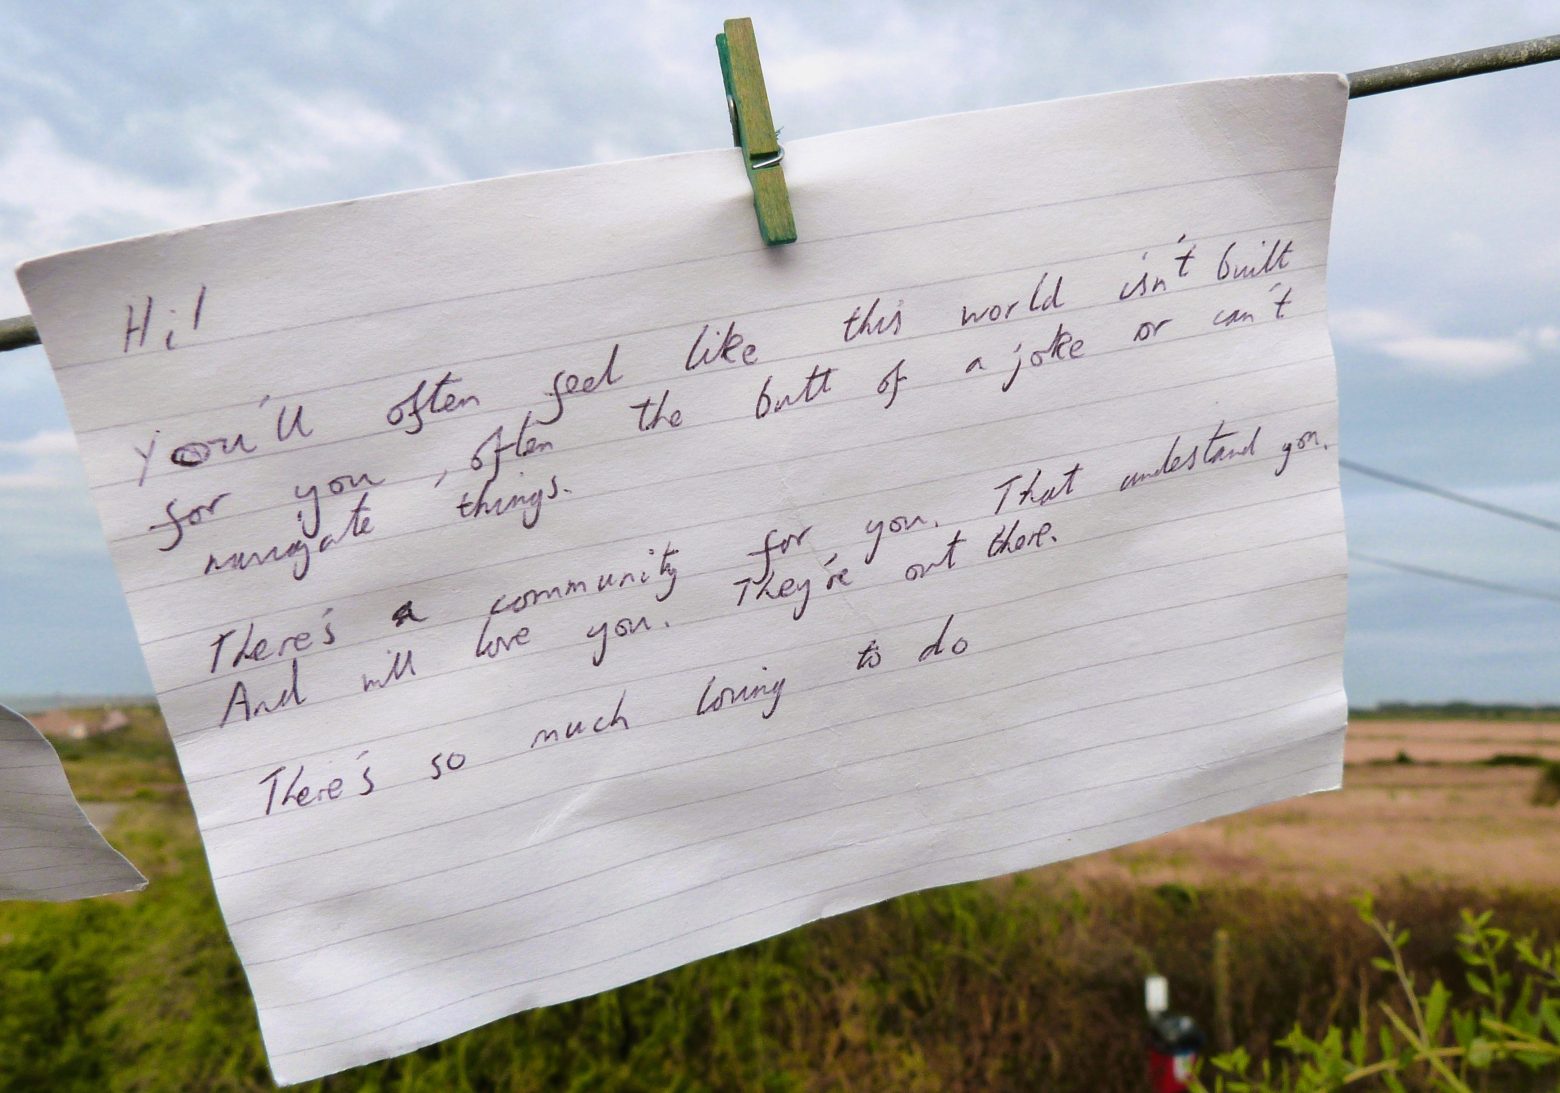 Hi!
You'll often feel like this world isn't built
for you, often the butt of a joke or can't
navigate things.
There's a community for you. That understand you.
And will love you. They're out there.
There's so much loving to do